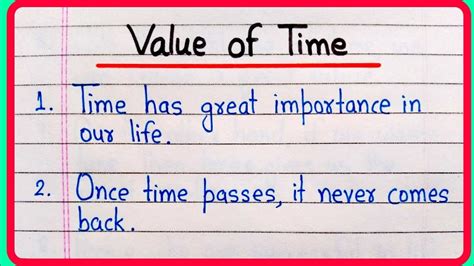 Value of Time
1. Time has great importance in
our life.
2. Once time passes, it never comes
back.